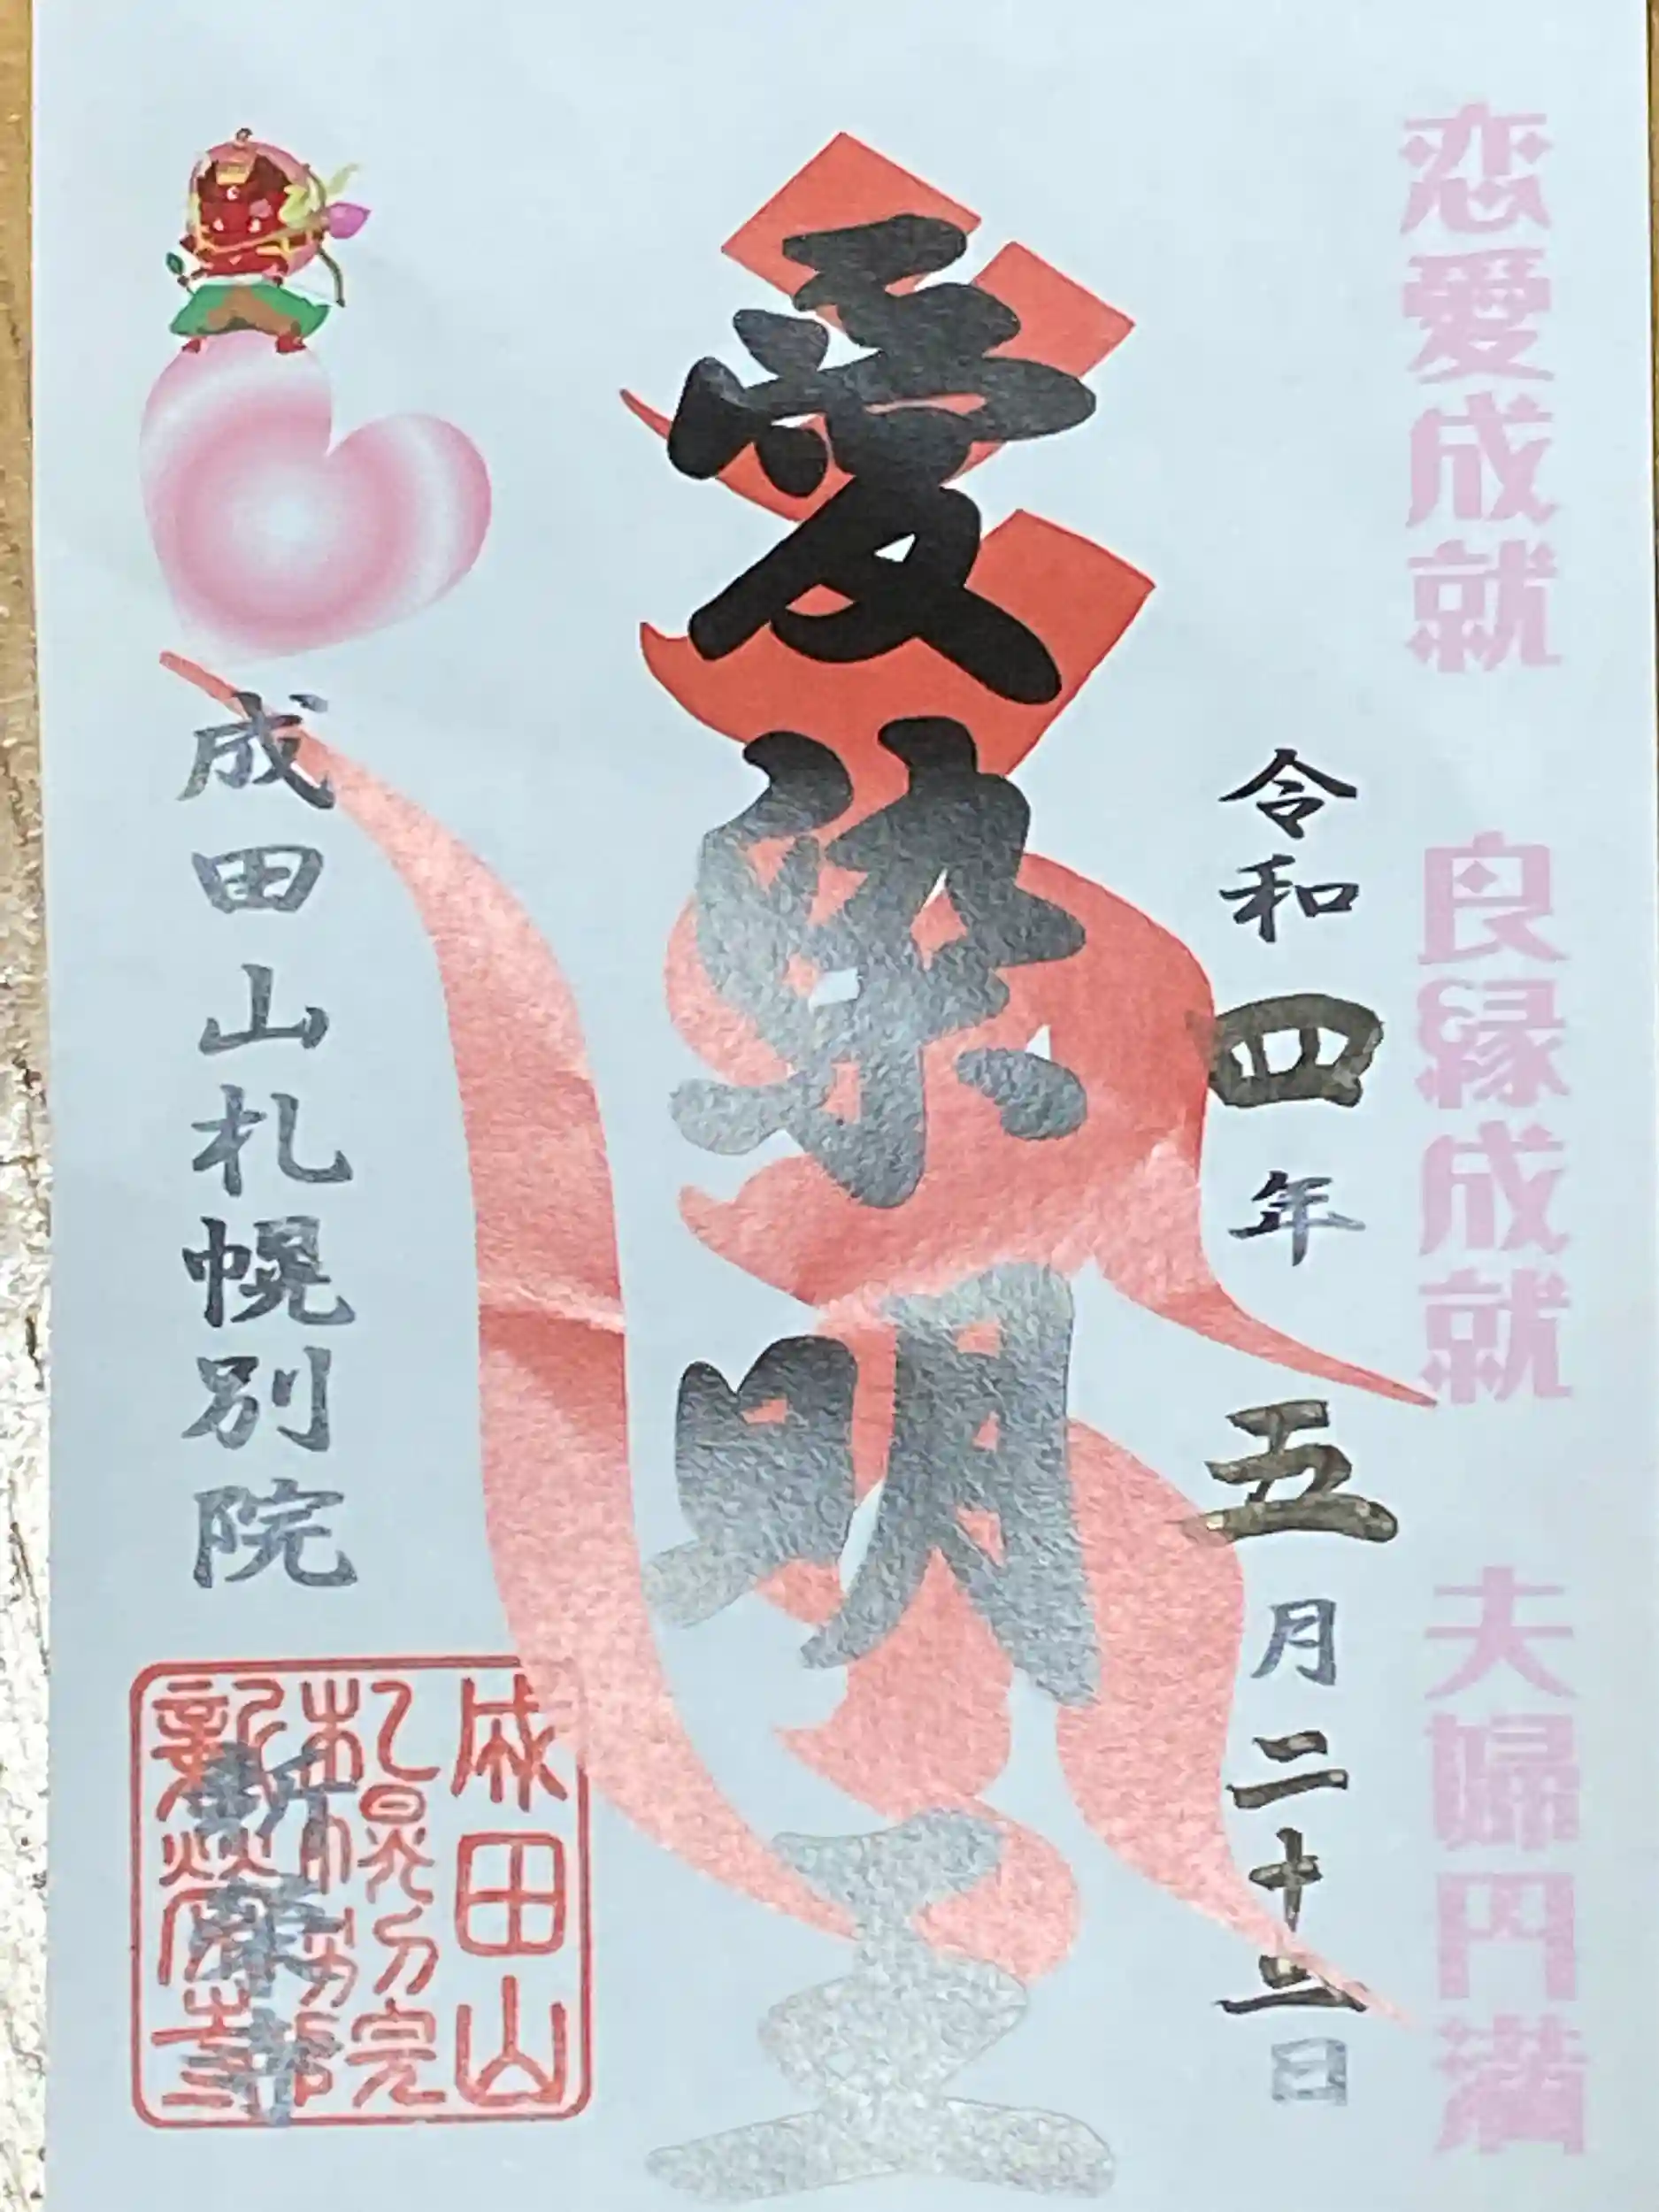 恋愛成就 良縁成就 夫婦円満
令和四年五月二十三日
愛染明王
成田山札幌別院
新栄寺
成田山
札幌別院
新榮寺